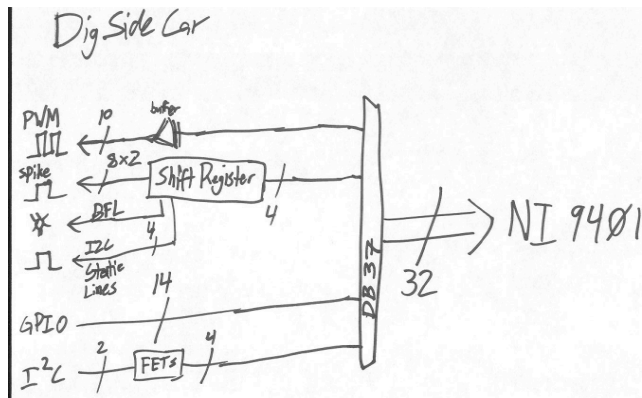 Dig Side Car
PWM
10
buffer
spike
8x2
Shift Register
4
BFL
4
I2C
Static
Lines
14
GPIO
I²C
2
FETs
4
DB37
32
NI 9401